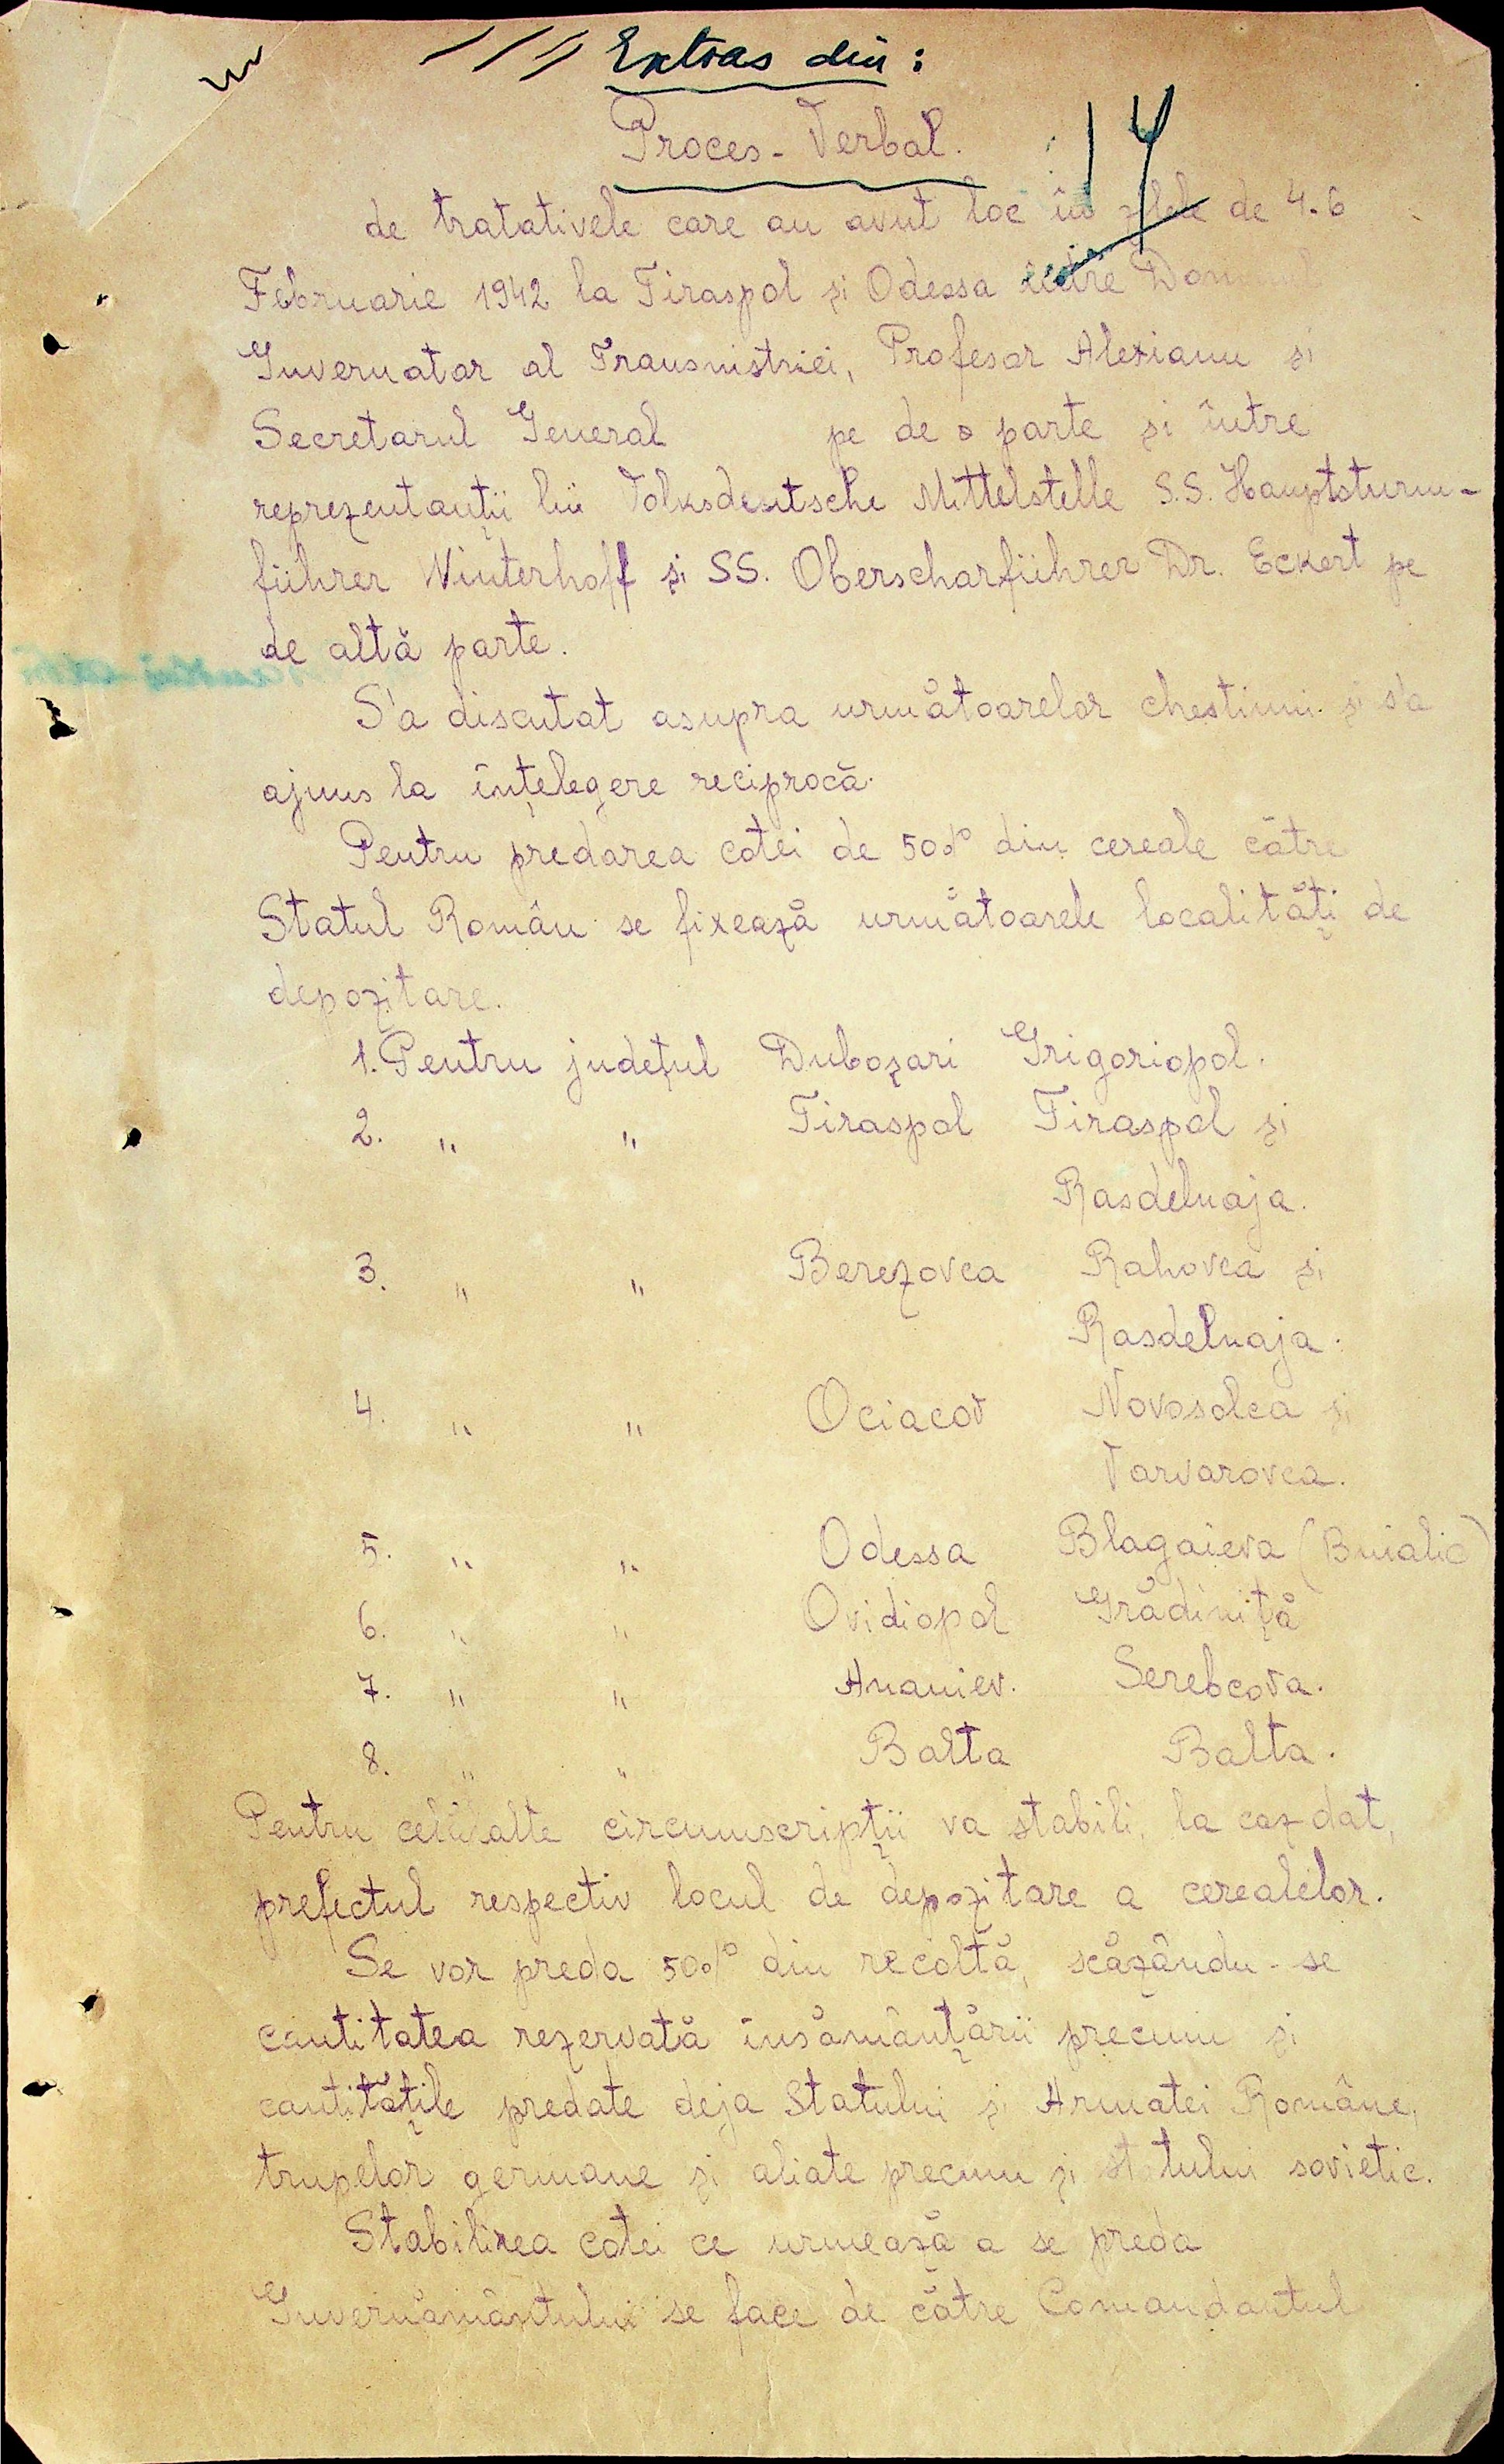 Extras din:
Proces-Verbal.
14
de tratativele care au avut loc în zilele de 4-6
Februarie 1942 la Tiraspol și Odessa între Domnul
Guvernator al Transnistriei, Profesor Alexianu și
Secretarul General pe de o parte și între
reprezentanții lui Volksdeutsche Mittelstelle S.S. Hauptsturm-
führer Winterhoff și SS. Oberscharführer Dr. Eckert pe
de altă parte.
S'a discutat asupra următoarelor chestiuni și s'a
ajuns la înțelegere reciprocă.
Pentru predarea cotei de 50% din cereale către
Statul Român se fixează următoarele localități de
depozitare.
1. Pentru județul Duboșari Grigoriopol.
2. " " Tiraspol Tiraspol și
Rasdelnaja.
3. " " Berezovca Rahovca și
Rasdelnaja.
4. " " Ociacov Novosolca și
Varvarovca.
5. " " Odessa Blagaieva (Buialic)
6. " " Ovidiopol Grădiniță
7. " " Ananiev. Serebcova.
8. " " Balta Balta.
Pentru celelalte circumscripții va stabili, la caz dat,
prefectul respectiv locul de depozitare a cerealelor.
Se vor preda 50% din recoltă, scăzându-se
cantitatea rezervată însămânțării precum și
cantitățile predate deja Statului și Armatei Române,
trupelor germane și aliate precum și statului sovietic.
Stabilirea cotei ce urmează a se preda
Guvernământului se face de către Comandantul